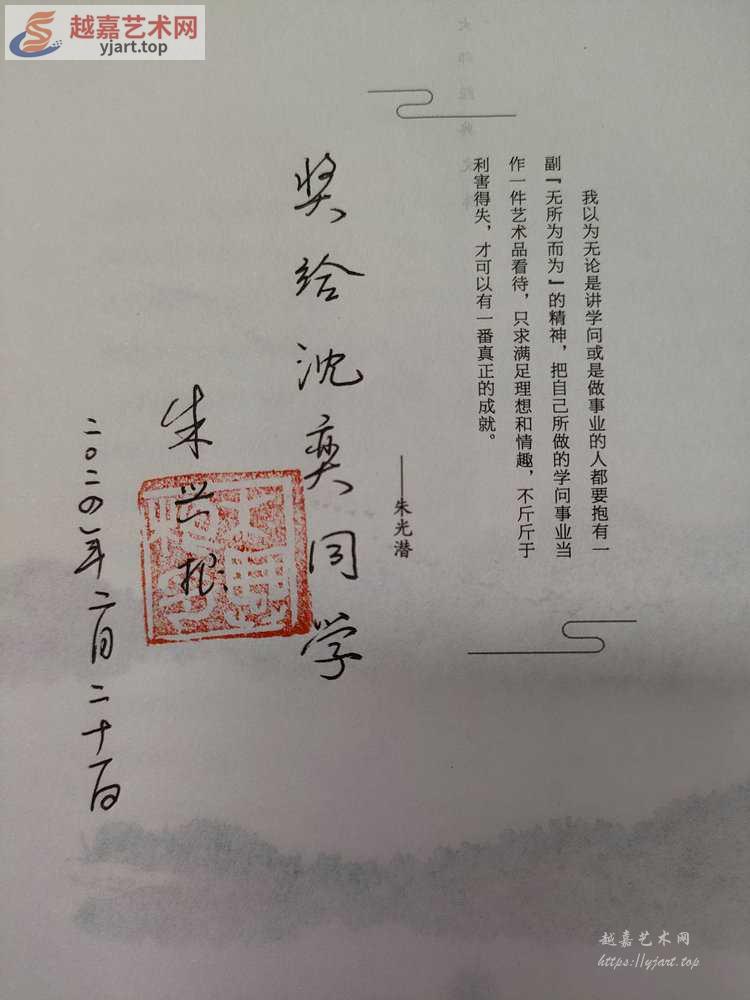 越嘉艺术网
yjart.top
我以为无论是讲学问或是做事业的人都要抱有一
副『无所为而为』的精神，把自己所做的学问事业当
作一件艺术品看待，只求满足理想和情趣，不斤斤于
利害得失，才可以有一番真正的成就。
——朱光潜
奖给沈奕同学
朱兴根
二〇二四年二月二十日
越嘉艺术网
https://yjart.top